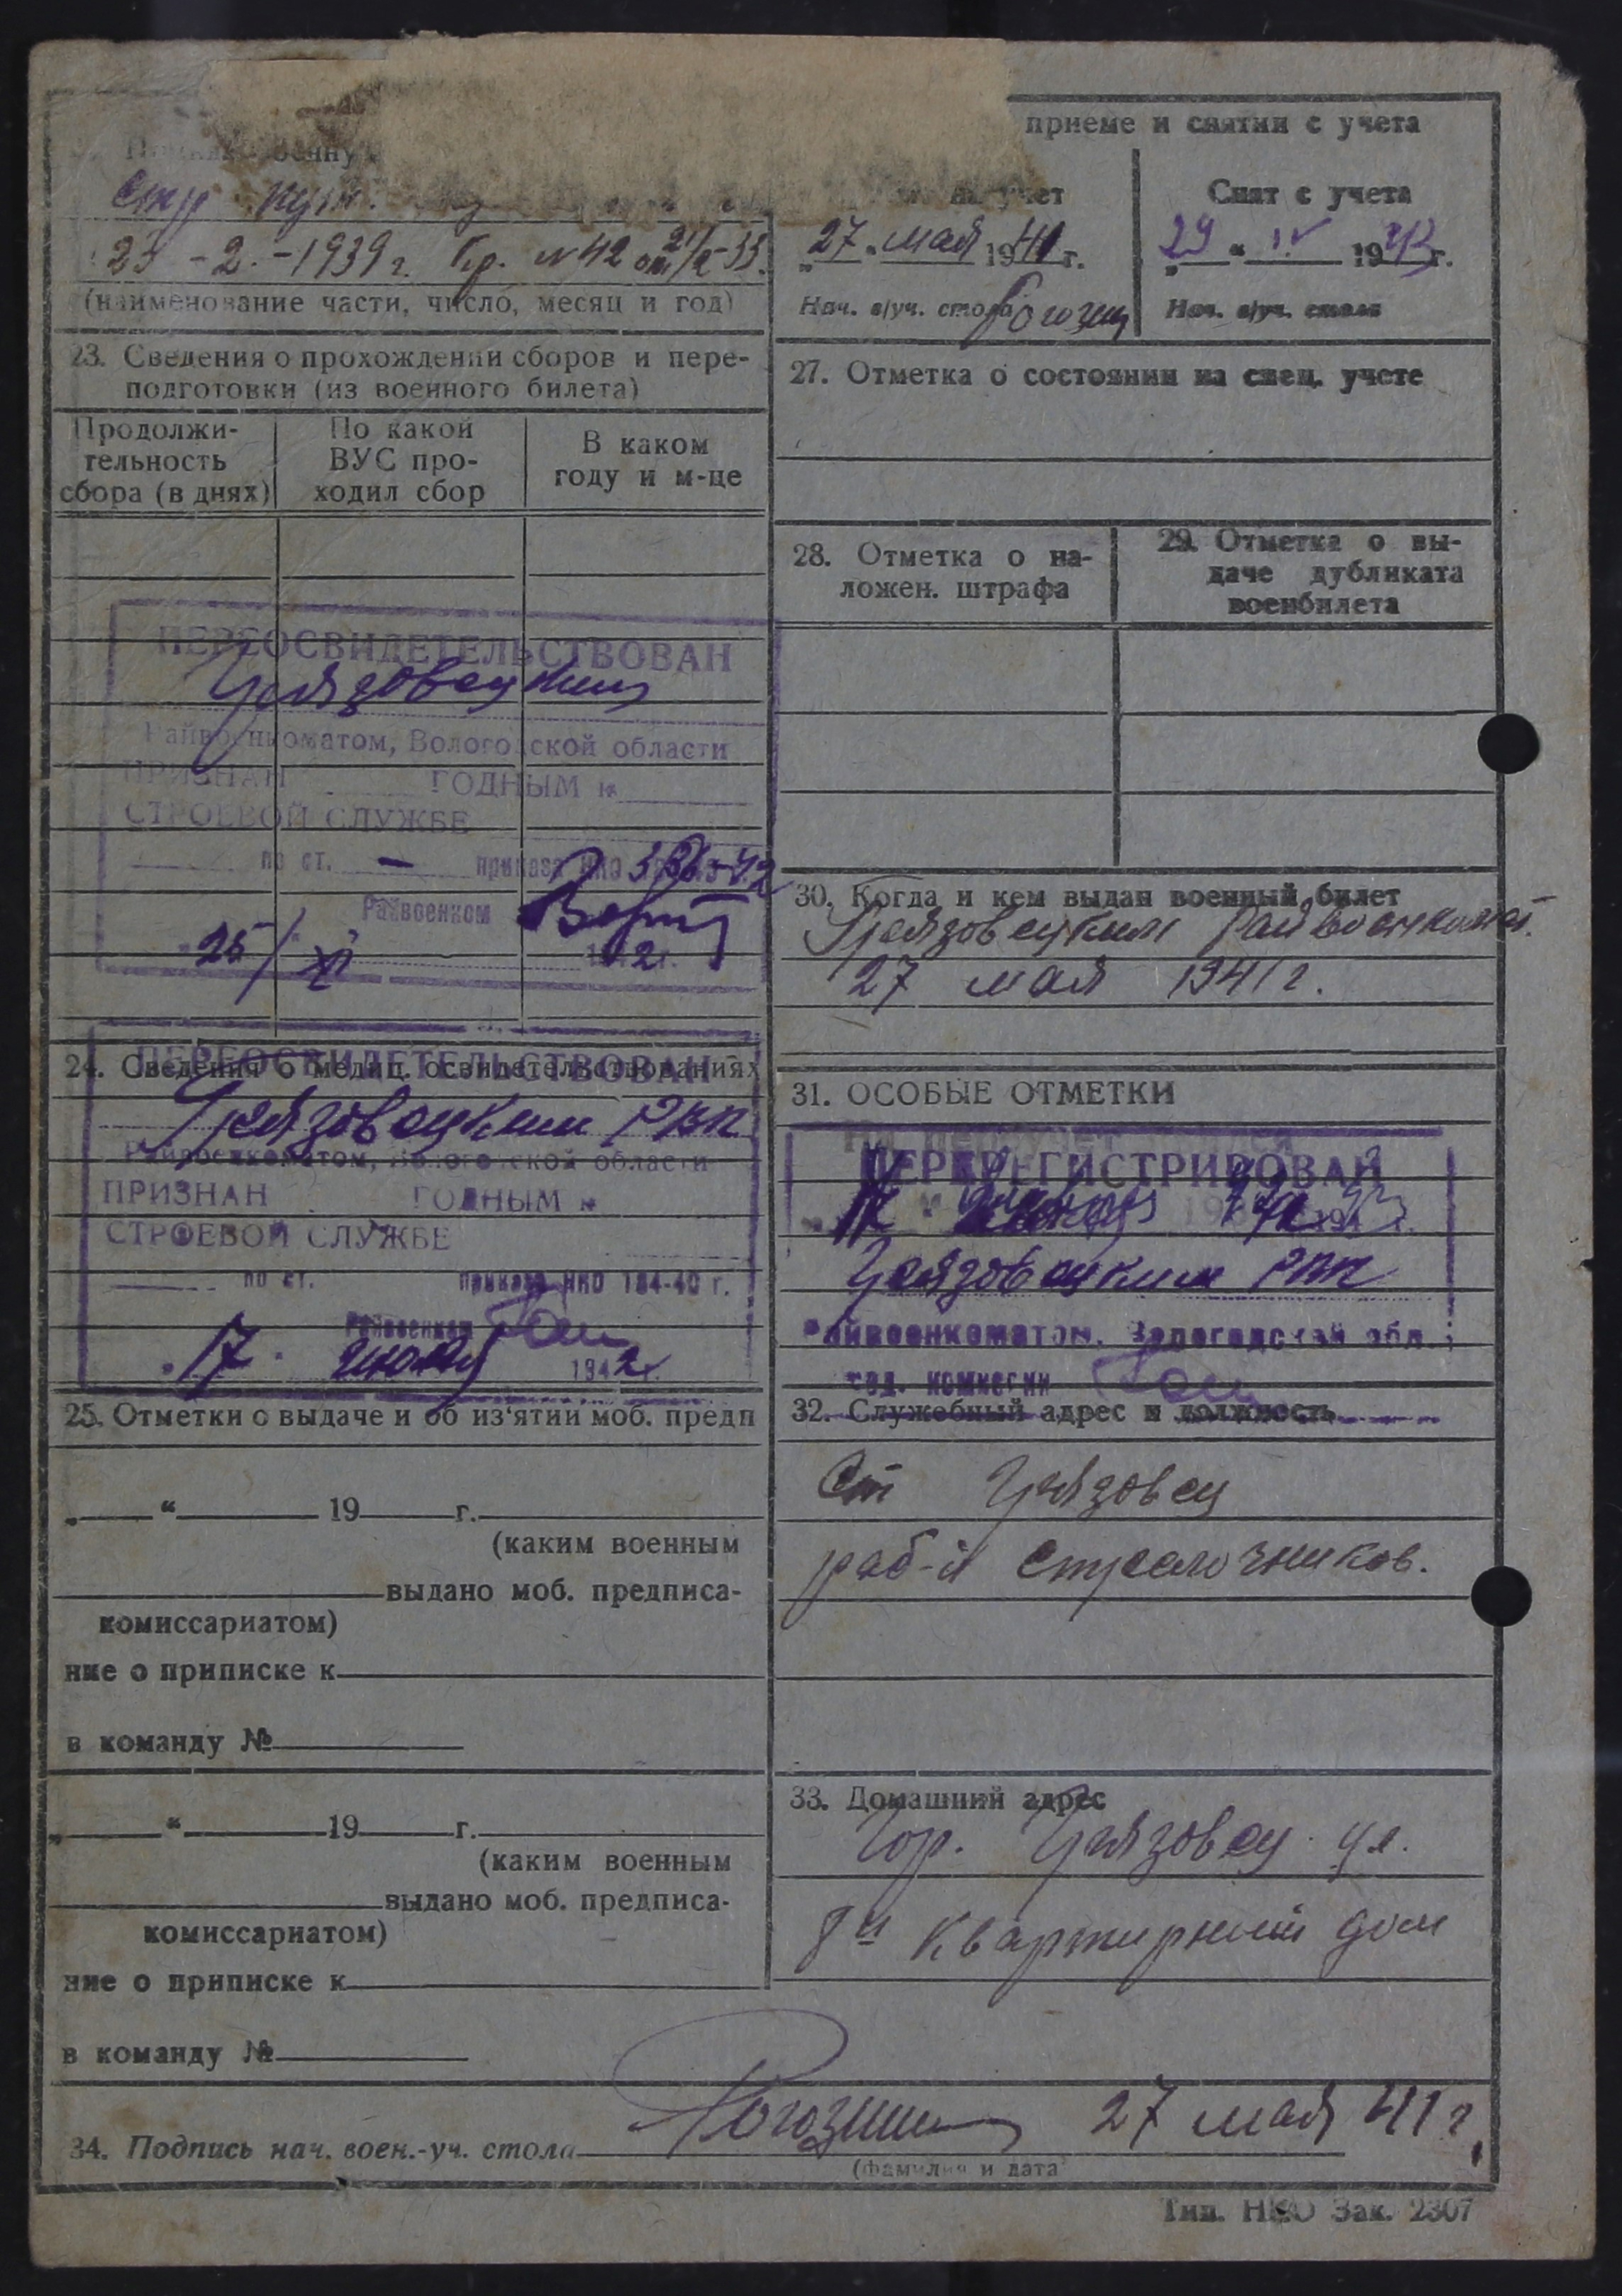 приеме и снятии с учета
23 - 2 - 1939 г. Пр. N 42 от 21/2-33.
(наименование части, число, месяц и год)
23. Сведения о прохождении сборов и пере-
подготовки (из военного билета)
Продолжи-
тельность
сбора (в днях)
По какой
ВУС про-
ходил сбор
В каком
году и м-це
ПЕРЕОСВИДЕТЕЛЬСТВОВАН
Грязовецким
Райвоенкоматом, Вологодской области
ПРИЗНАН ГОДНЫМ к
СТРОЕВОЙ СЛУЖБЕ
по ст. — приказа НКО 336-42
Райвоенком
25/XI 1942 г.
24. Сведения о медиц. освидетельствованиях
ПЕРЕОСВИДЕТЕЛЬСТВОВАН
Грязовецким РВК
Райвоенкоматом, Вологодской области
ПРИЗНАН ГОДНЫМ к
СТРОЕВОЙ СЛУЖБЕ
по ст. приказа НКО 184-40 г.
Райвоенком
"17" июля 1942 г.
25. Отметки о выдаче и об из'ятии моб. предп
„ “ 19 г.
(каким военным
выдано моб. предписа-
комиссариатом)
ние о приписке к
в команду №
„ “ 19 г.
(каким военным
выдано моб. предписа-
комиссариатом)
ние о приписке к
в команду №
на учет
„27“ мая 1941 г.
Нач. в/уч. стола Рогозин
Снят с учета
„29“ IV 1943 г.
Нач. в/уч. стола
27. Отметка о состоянии на спец. учете
28. Отметка о на-
ложен. штрафа
29. Отметка о вы-
даче дубликата
военбилета
30. Когда и кем выдан военный билет
Грязовецким Райвоенкомат.
27 мая 1941 г.
31. ОСОБЫЕ ОТМЕТКИ
ПЕРЕРЕГИСТРИРОВАН
Грязовецким РВК
Райвоенкоматом, Вологодской обл.
32. Служебный адрес и должность
Ст Грязовец
раб-й стрелочников.
33. Домашний адрес
Гор. Грязовец ул.
8и квартирный дом
34. Подпись нач. воен.-уч. стола Рогозин 27 мая 41 г.
(фамилия и дата)
Тип. НКО Зак. 2307